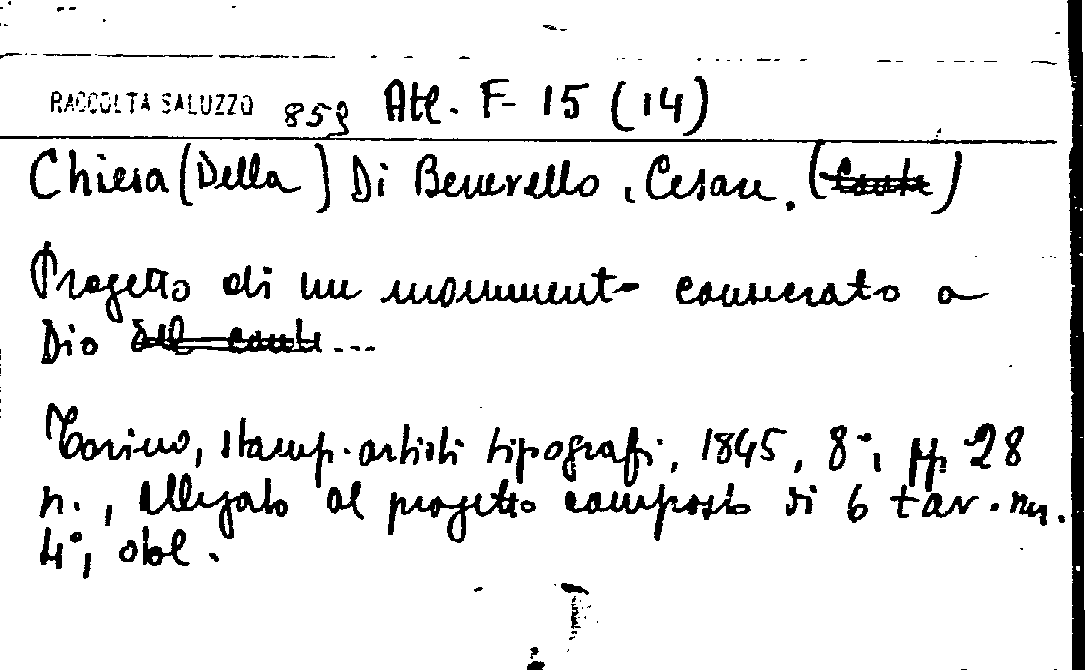 RACCOLTA SALUZZO 859 Atl. F 15 (14)
Chiesa (Della) Di Benevello, Cesare. (Conte)
Progetto di un monumento consacrato a
Dio del conte ...
Torino, stamp. artisti tipografi, 1845, 8°, pp. 28
n., allegato al progetto composto di 6 tav. nn.
4°, obl.